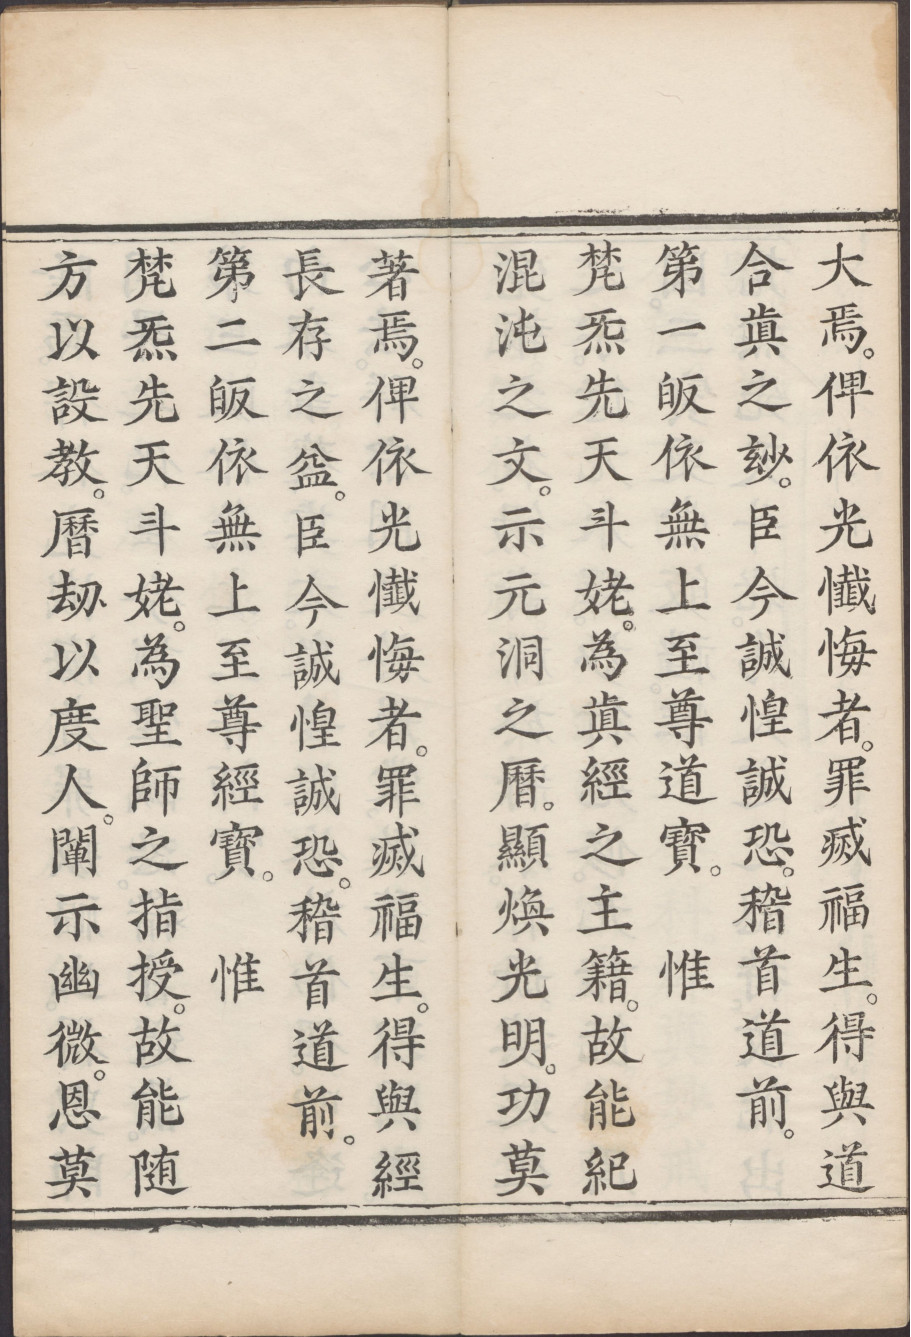 大焉。俾依光懺悔者。罪滅福生。得與道
合眞之玅。臣今誠惶誠恐。稽首道前。
第一皈依無上至尊道寶。　惟
梵炁先天斗姥。為眞經之主籍。故能紀
混沌之文。示元洞之曆。顯煥光明。功莫
著焉。俾依光懺悔者。罪滅福生。得與經
長存之益。臣今誠惶誠恐。稽首道前。
第二皈依無上至尊經寶。　惟
梵炁先天斗姥。為聖師之指授。故能随
方以設教。曆劫以度人。闡示幽微。恩莫